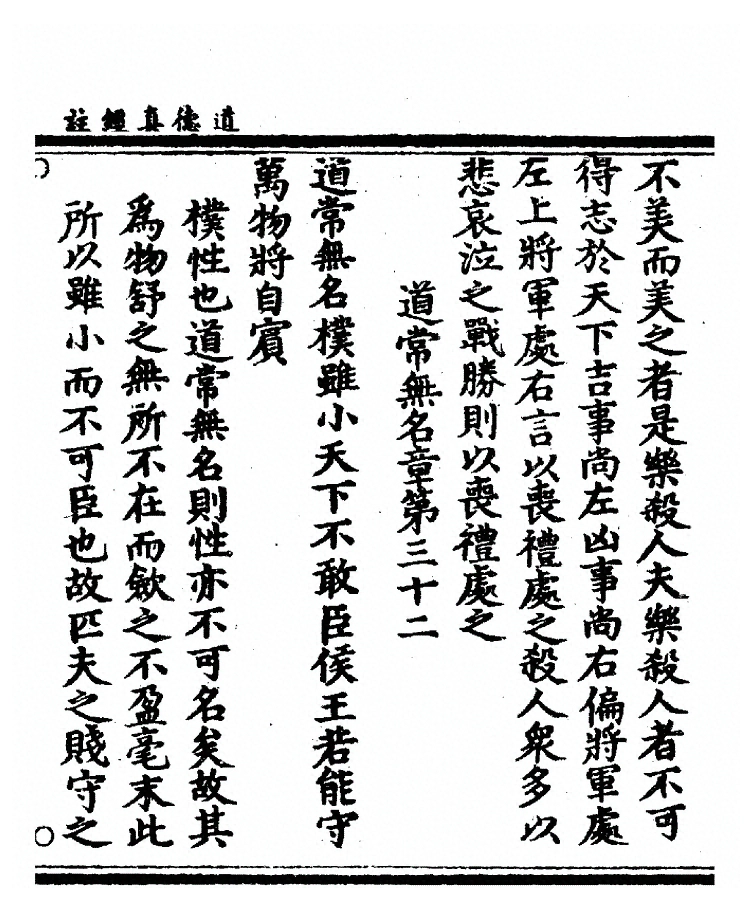 道德真經註
不美而美之者是樂殺人夫樂殺人者不可
得志於天下吉事尚左凶事尚右偏將軍處
左上將軍處右言以喪禮處之殺人衆多以
悲哀泣之戰勝則以喪禮處之
道常無名章第三十二
道常無名樸雖小天下不敢臣侯王若能守
萬物將自賓
樸性也道常無名則性亦不可名矣故其
爲物舒之無所不在而歛之不盈毫末此
所以雖小而不可臣也故匹夫之賤守之